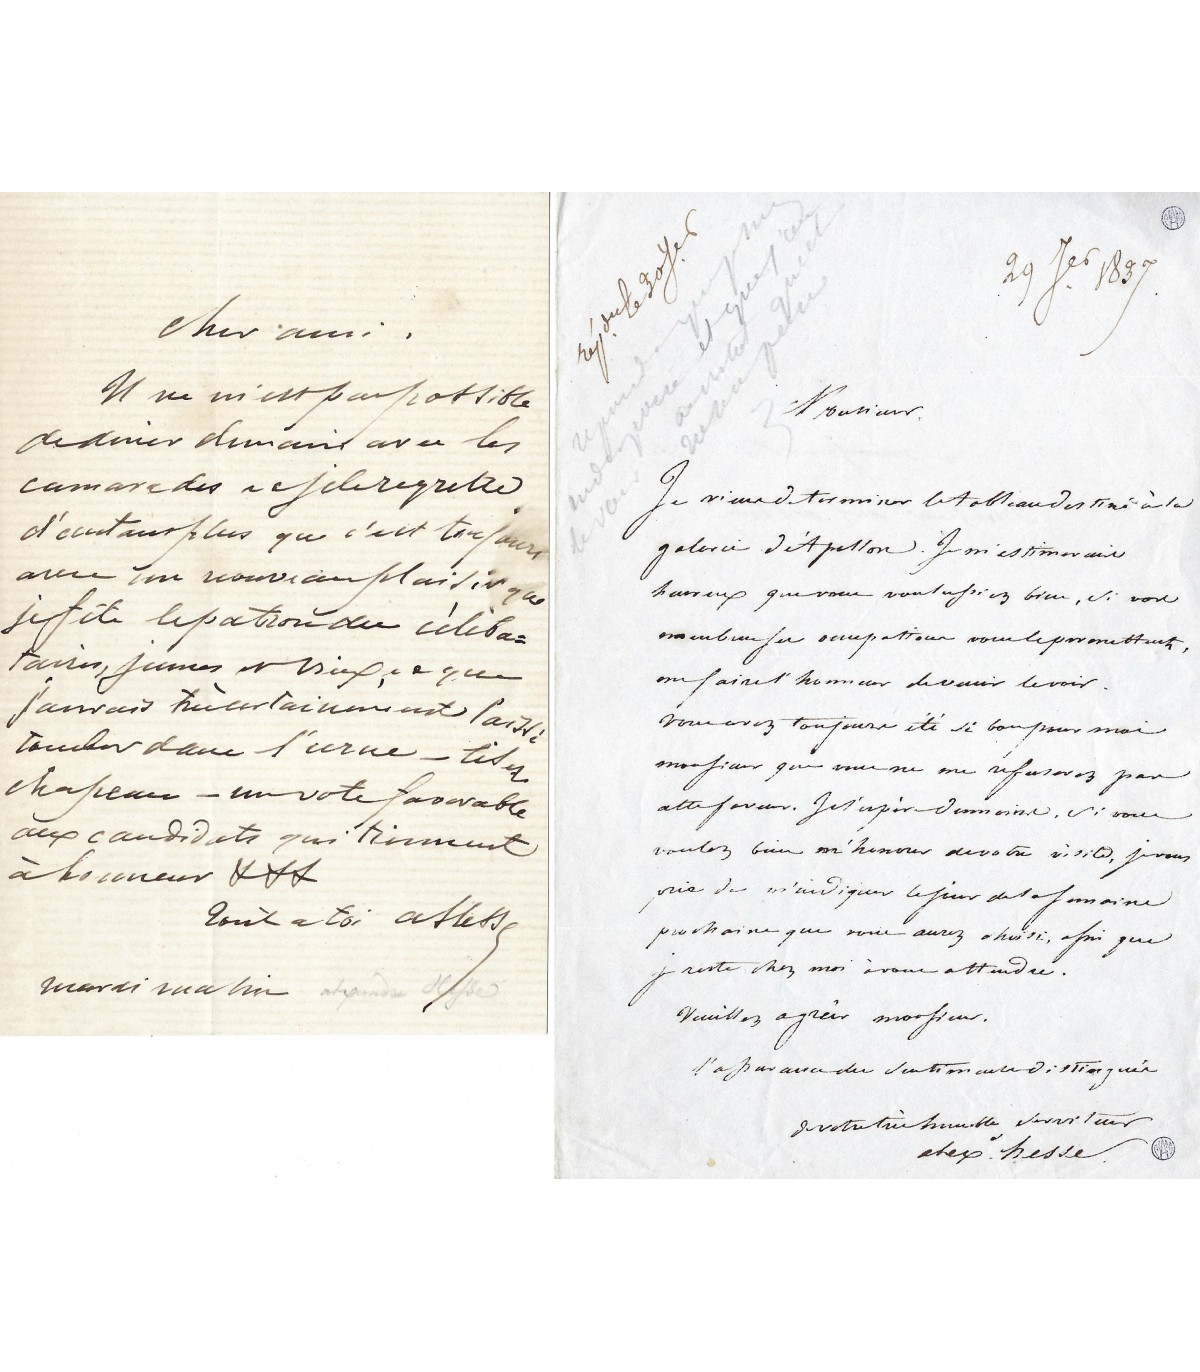 cher ami.
Il ne m'est pas possible
de diner demain avec les
camarades et je le regrette
d'autant plus que c'est toujours
avec un nouveau plaisir que
je fête le patron des céliba=
taires, jeunes et vieux, et que
j'aurais très certainement laissé
tomber dans l'urne – lisez
chapeau – un vote favorable
aux candidats qui tiennent
à honneur
tout a toi aHesse
mardi matin alexandre Hesse
rép. du le 30
29 1837.
Monsieur.
Je viens de terminer le tableau destiné à la
galerie d'Apollon. Je m'estimerais
heureux que vous voulussiez bien, si vos
nombreuses occupations vous le permettent,
me faire l'honneur de venir le voir.
Vous avez toujours été si bon pour moi
monsieur que vous ne me refuserez pas
cette faveur. Je l'espère du moins. Si vous
voulez bien m'honorer de votre visite, je vous
prie de m'indiquer le jour de la semaine
prochaine que vous aurez choisi, afin que
je reste chez moi à vous attendre.
Veuillez agréer monsieur.
l'assurance des sentiments distingués
de votre très humble serviteur
alexd. hesse.